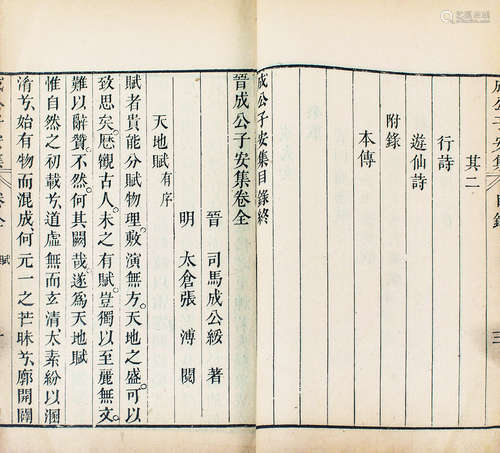 成公子安集 目錄 三
其二
行詩
遊仙詩
附錄
本傳
成公子安集目錄終
晉成公子安集卷全
晉 司馬成公綏 著
明 太倉張溥 閱
天地賦有序
賦者貴能分賦物理敷演無方天地之盛可以
致思矣歷觀古人未之有賦豈獨以至麗無文
難以辭贊不然何其闕哉遂爲天地賦
惟自然之初載兮道虛無而玄清太素紛以溷
淆兮始有物而混成何元一之芒昧兮廓開闢
成公子安集 卷全 賦